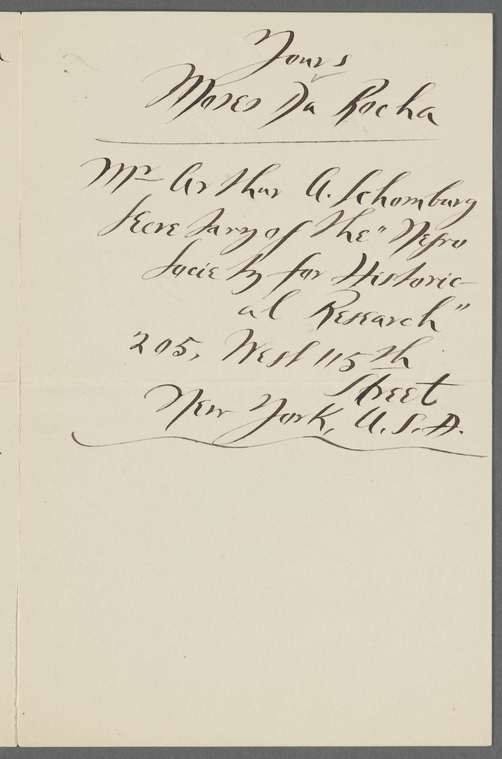 Yours
Moses Da Rocha
Mr Arthur A. Schomburg
Secretary of the "Negro
Society for Historic-
al Research"
205, West 115th
Street
New York, U.S.A.